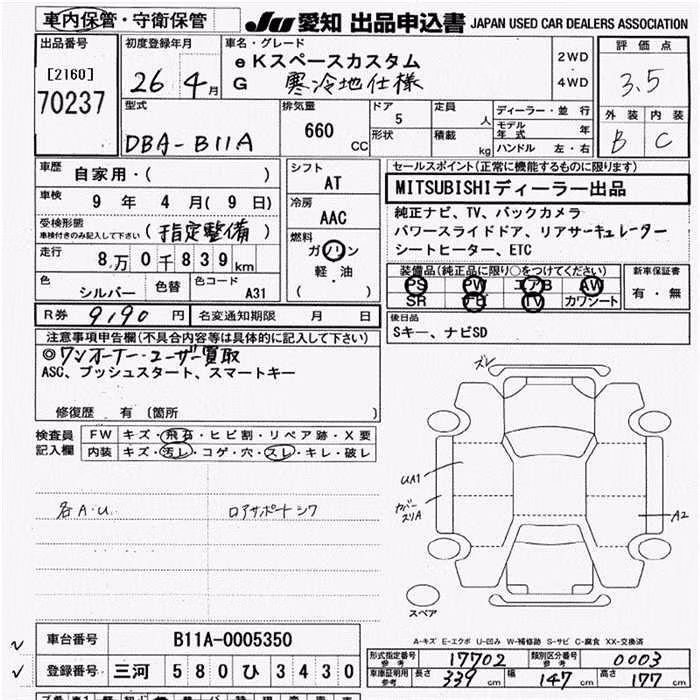 車内保管・守衛保管
JU 愛知 出品申込書 JAPAN USED CAR DEALERS ASSOCIATION
出品番号
[2160]
70237
初度登録年月
26 4月
車名・グレード
eKスペースカスタム
G 寒冷地仕様
2WD
4WD
評価点
3.5
外装 内装
B C
型式
DBA-B11A
排気量
660 CC
ドア
5
形状
定員
人
積載
kg
ディーラー・並行
モデル年式 年
ハンドル 左・右
車歴
自家用・( )
車検
9 年 4 月( 9 日)
受検形態
車検付きのみ記入して下さい
(指定整備)
走行
8万0千839km
色
シルバー
色替
色コード
A31
シフト
AT
冷房
AAC
燃料
ガソリン
軽・油
( )
セールスポイント(正常に機能するものに限ります)
MITSUBISHIディーラー出品
純正ナビ、TV、バックカメラ
パワースライドドア、リアサーキュレーター
シートヒーター、ETC
装備品(純正品に限り○をつけてください)
PS PW エアB AW
SR ナビ TV カワシート
新車保証書
有・無
R券 9190 円
名変通知期限 月 日
後日品
Sキー、ナビSD
注意事項申告欄(不具合内容等は具体的に記入して下さい)
◎ワンオーナー・ユーザー買取
ASC、プッシュスタート、スマートキー
修復歴 有(箇所 )
検査員
記入欄
FW キズ・飛石・ヒビ割・リペア跡・X要
内装 キズ・汚レ・コゲ・穴・スレ・キレ・破レ
各A・U
ロアサポートシワ
ズレ
UA1
カバー
スリA
A2
スペア
A-キズ E-エクボ U-凹み W-補修跡 S-サビ C-腐食 XX-交換済
車台番号 B11A-0005350
登録番号 三河 580 ひ 3430
形式指定番号
参考
17702
類別区分番号
参考
0003
車庫証明用
参考
長さ 339 cm 幅 147 cm 高さ 177 cm